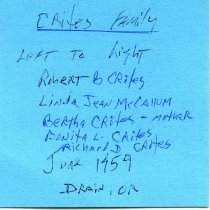 Crites Family
Left to Right
Robert B Crites
Linda Jean McCallum
Bertha Crites - mother
Bonita L. Crites
Richard D Crites
June 1959
Drain, OR